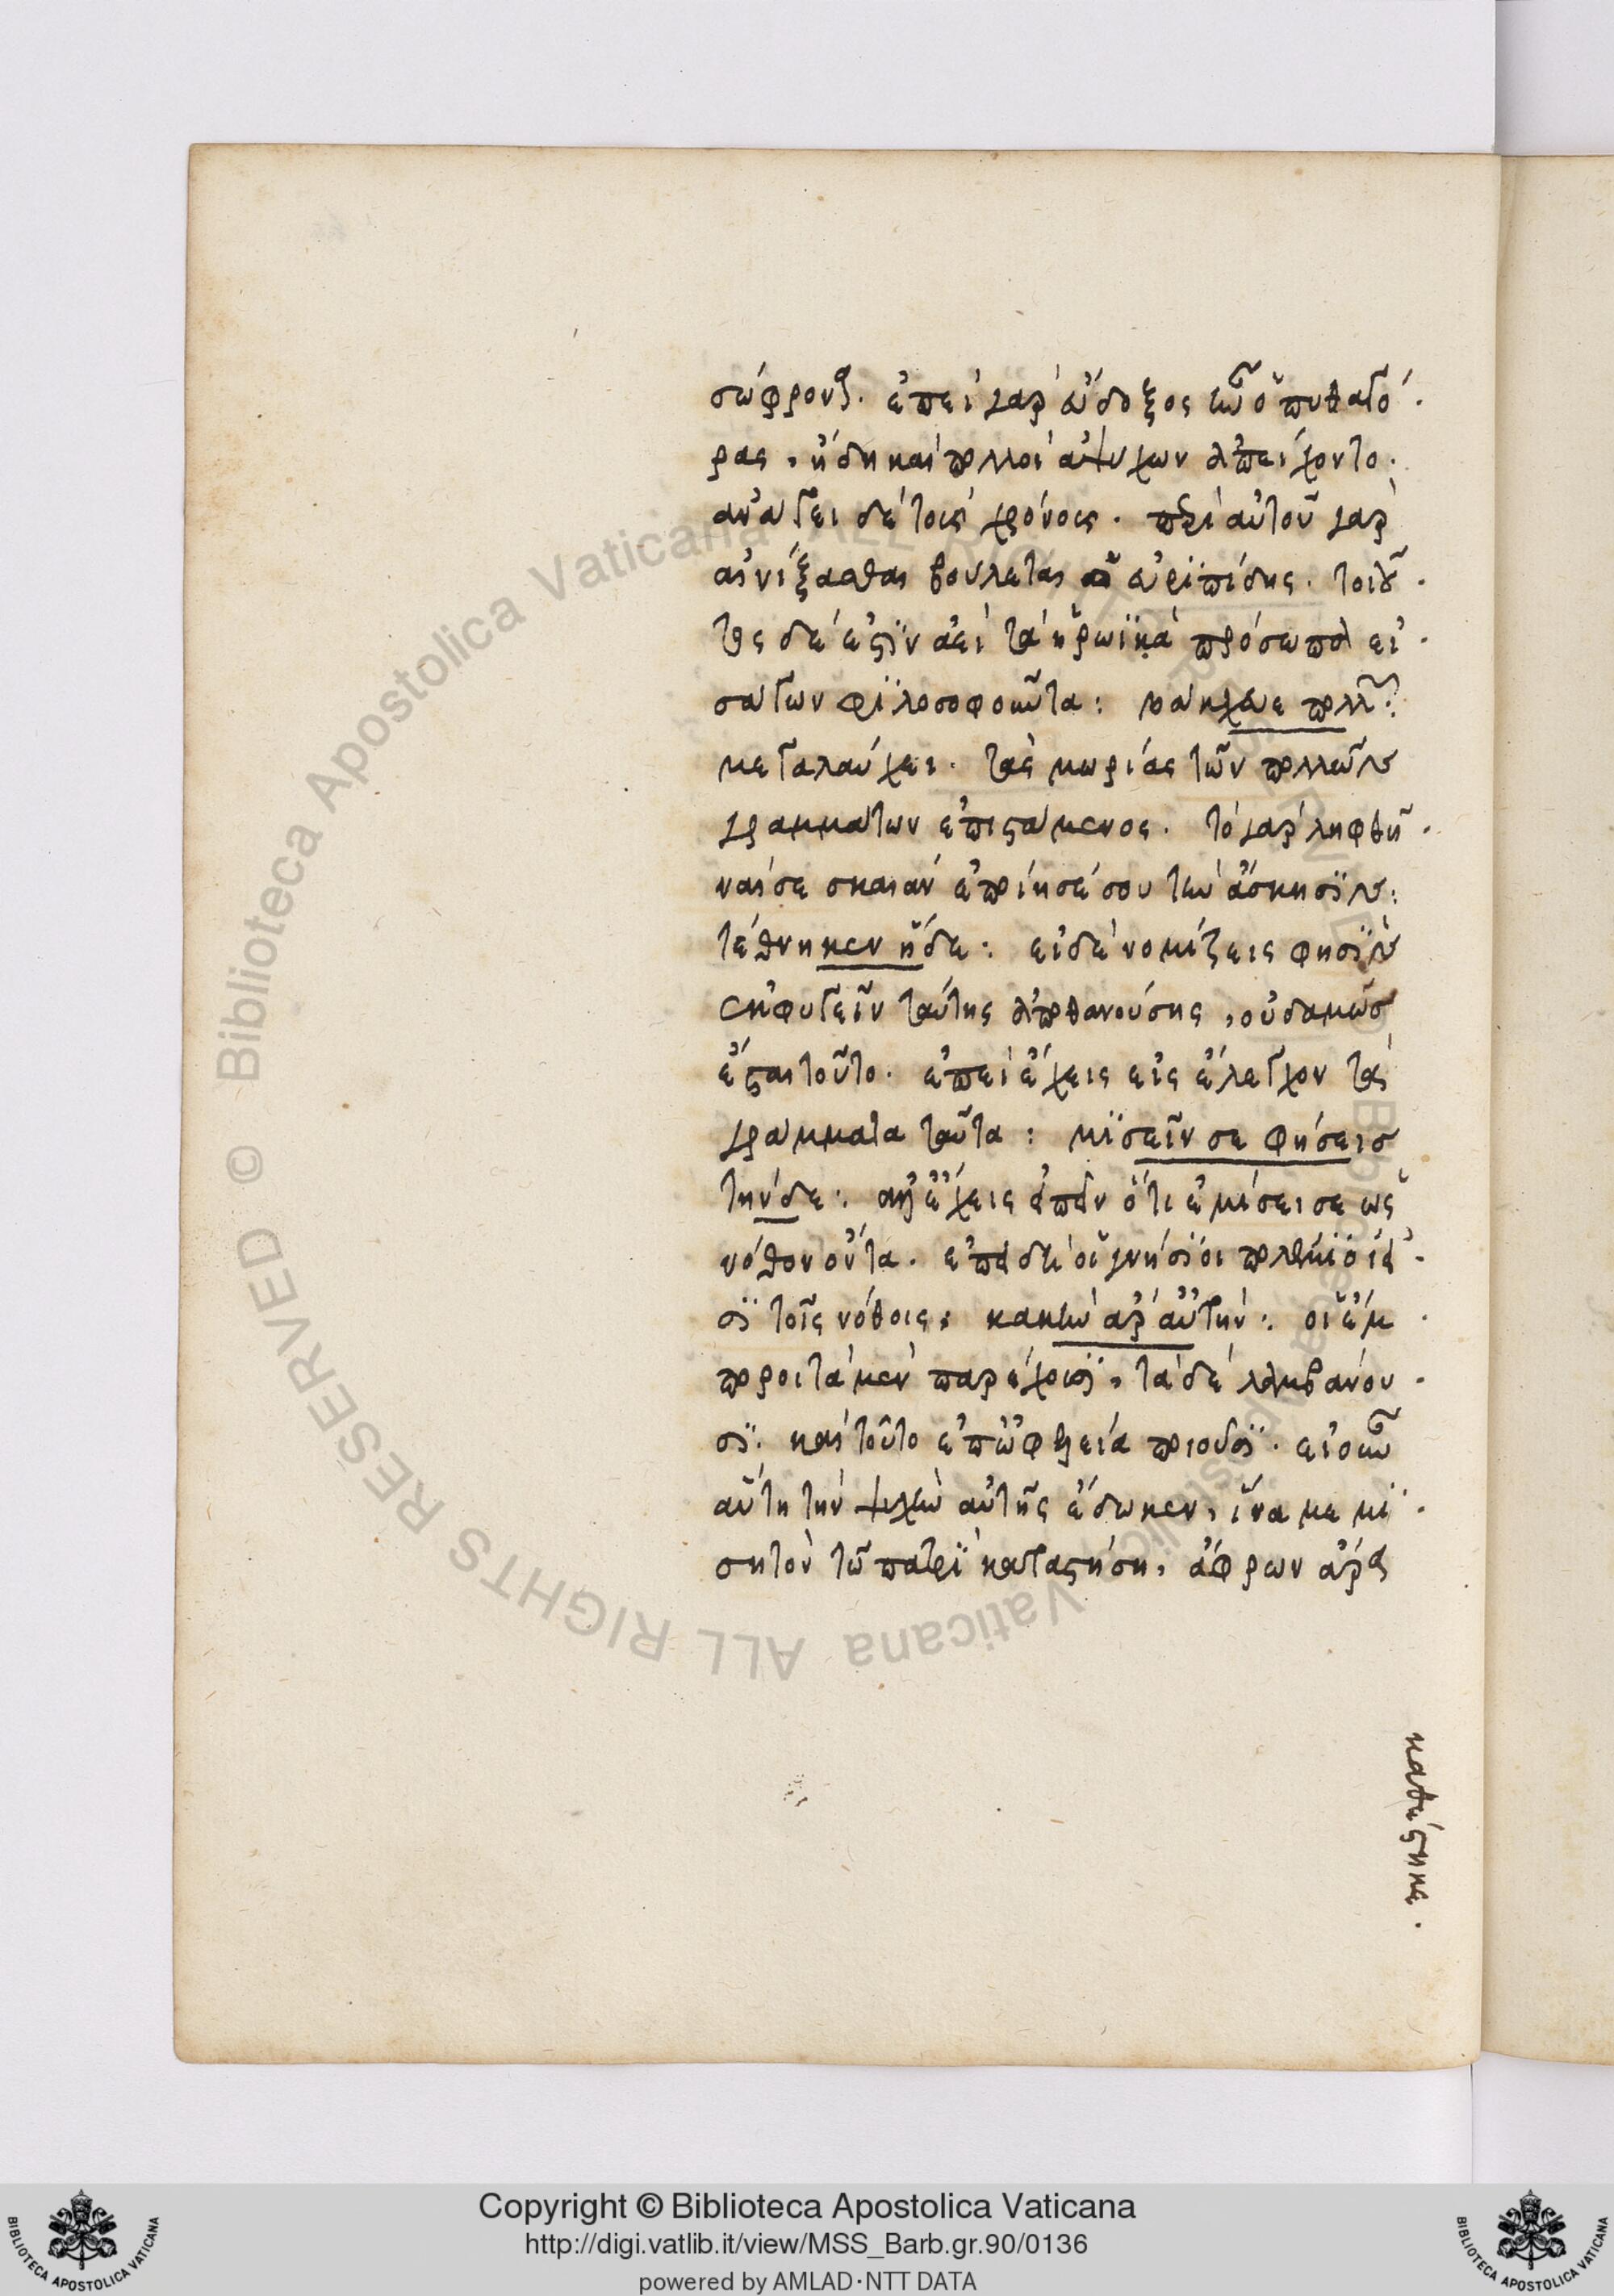 σώφρονες. ἐπεὶ γὰρ ἔνδοξος ἦν ὁ πυθαγό.
ρας, ἤδη καὶ πολλοὶ ἀψύχων ἀπείχοντο.
ἀνάγει δὲ τοὺς χρόνους. περὶ αὐτοῦ γὰρ
αἰνίξασθαι βούλεται ὁ εὐρϊπίδης. τοιού.
τος δέ ἐστὶν ἀεὶ τὰ ἡρωϊκὰ πρόσωπα εἰ.
σάγων φϊλοσοφοῦντα: βάκχευε πολλῶν
μεγαλαύχει. τὰς μωρίας τῶν πολλῶν
γραμμάτων ἐπιστάμενος. τὸ γὰρ ληφθῆ.
ναί σε σκαιὰν ἐποίησέ σου τὴν ἄσκησϊν:
τέθνηκεν ἥδε: εἰ δὲ νομίζεις φησὶν
ἐκφυγεῖν ταύτης ἀποθανούσης, οὐδαμῶς
ἔσται τοῦτο. ἐπεὶ ἔχεις εἰς ἔλεγχον τὰ
γράμματα ταῦτα: μϊσεῖν σε φήσεις
τήνδε: ἀλλ' ἔχεις εἰπεῖν ὅτι ἐμίσει σε ὡς
νόθον ὄντα. ἐπειδὴ οἱ γνήσϊοι πολέμϊοί εἰ.
σϊ τοῖς νόθοις: κακὴν ἄρ' αὐτὴν: οἱ ἔμ.
ποροι τὰ μὲν παρέχουσϊ, τὰ δὲ λαμβάνου.
σϊ. καὶ τοῦτο ἐπ' ὠφελεία ποιοῦσϊ. εἰ οὖν
αὕτη τὴν ψυχὴν αὐτῆς ἔδωκεν, ἵνα με μϊ.
σητὸν τῶ πατρὶ καταστήση, ἄφρων ἄρα
καθέστηκε.
Copyright © Biblioteca Apostolica Vaticana
http://digi.vatlib.it/view/MSS_Barb.gr.90/0136
powered by AMLAD·NTT DATA